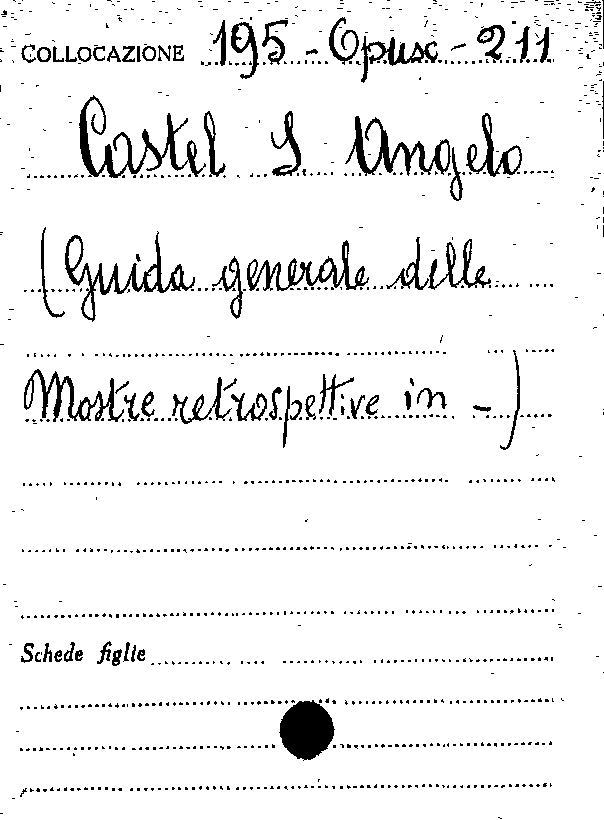 COLLOCAZIONE 195 - Opusc - 211
Castel S. Angelo
(Guida generale delle
Mostre retrospettive in -)
Schede figlie